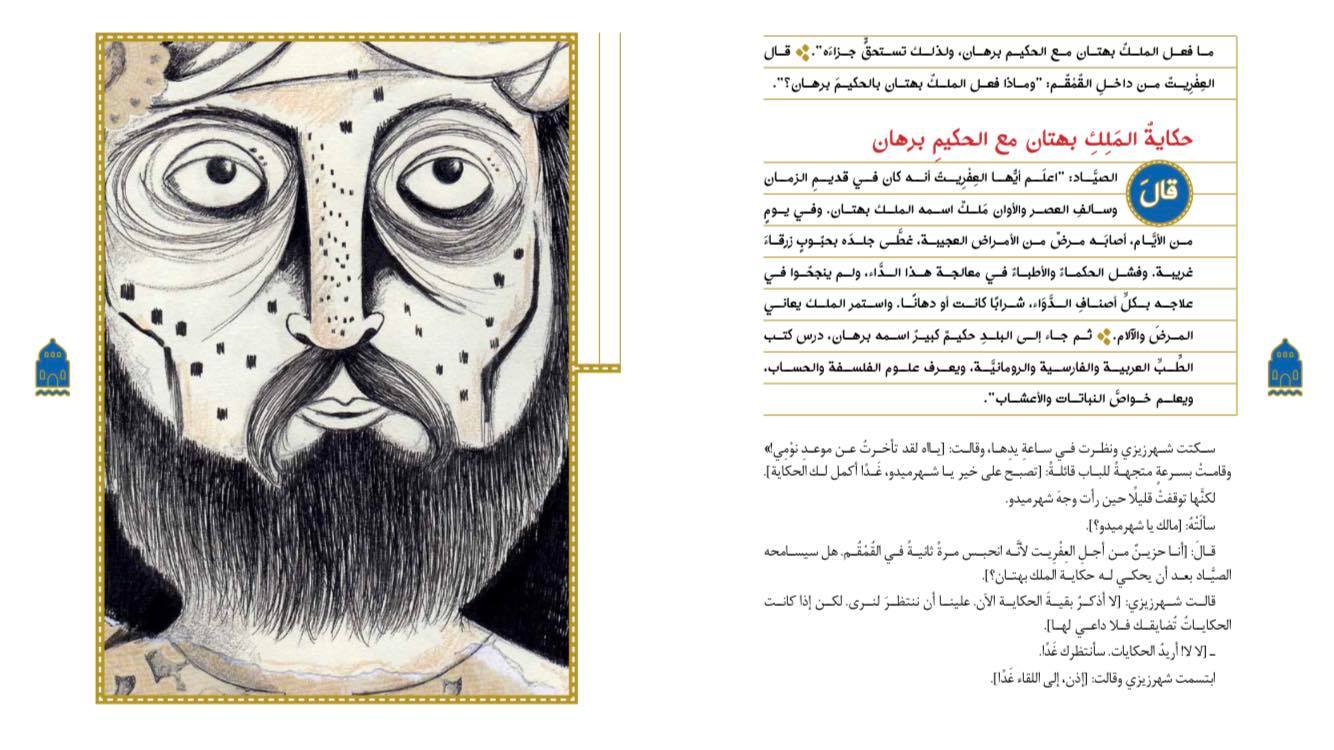 ما فعل الملكُ بهتان مع الحكيم برهان، ولذلك تستحقُّ جزاءَه". قال
العِفْريتُ من داخلِ القُمْقُم: "وماذا فعل الملكُ بهتان بالحكيمَ برهان؟".
حكايةُ المَلِكِ بهتان مع الحكيمِ برهان
قالَ
الصيَّاد: "اعلَم أيُّها العِفْريتُ أنه كان في قديمِ الزمان
وسالفِ العصرِ والأوان مَلكٌ اسمه الملك بهتان. وفي يومٍ
من الأيَّام، أصابَه مرضٌ من الأمراض العجيبة، غطَّى جلدَه بحبّوبٍ زرقاءَ
غريبة. وفشل الحكماءُ والأطباءُ في معالجة هذا الدَّاء، ولم ينجحُوا في
علاجه بكلِّ أصنافِ الدَّوَاء، شرابًا كانت أو دهانًا. واستمر الملك يعاني
المرضَ والآلام. ثم جاء إلى البلدِ حكيمٌ كبيرٌ اسمه برهان، درس كتب
الطِّبِّ العربية والفارسية والرومانيَّة، ويعرف علوم الفلسفة والحساب،
ويعلم خواصَّ النباتات والأعشاب".
سكتت شهرزيزي ونظرت في ساعةِ يدِها، وقالت: [ياااه لقد تأخرتُ عن موعدِ نوْمِي!»
وقامتْ بسرعةٍ متجهةً للباب قائلةً: [تصبح على خير يا شهرميدو، غَدًا أكمل لك الحكاية].
لكنَّها توقفتْ قليلًا حين رأت وجهَ شهرميدو.
سألَتْهُ: [مالك يا شهرميدو؟].
قالَ: [أنا حزينٌ من أجلِ العِفْريت لأنَّه انحبس مرةً ثانيةً في القُمْقُم. هل سيسامحه
الصيَّاد بعد أن يحكي له حكاية الملك بهتان؟].
قالت شهرزيزي: [لا أذكرُ بقيةَ الحكاية الآن. علينا أن ننتظرَ لنرى. لكن إذا كانت
الحكاياتُ تُضايقك فلا داعي لها].
ـ [لا لا! أريدُ الحكايات. سأنتظرك غَدًا.
ابتسمت شهرزيزي وقالت: [إذن، إلى اللقاء غَدًا].